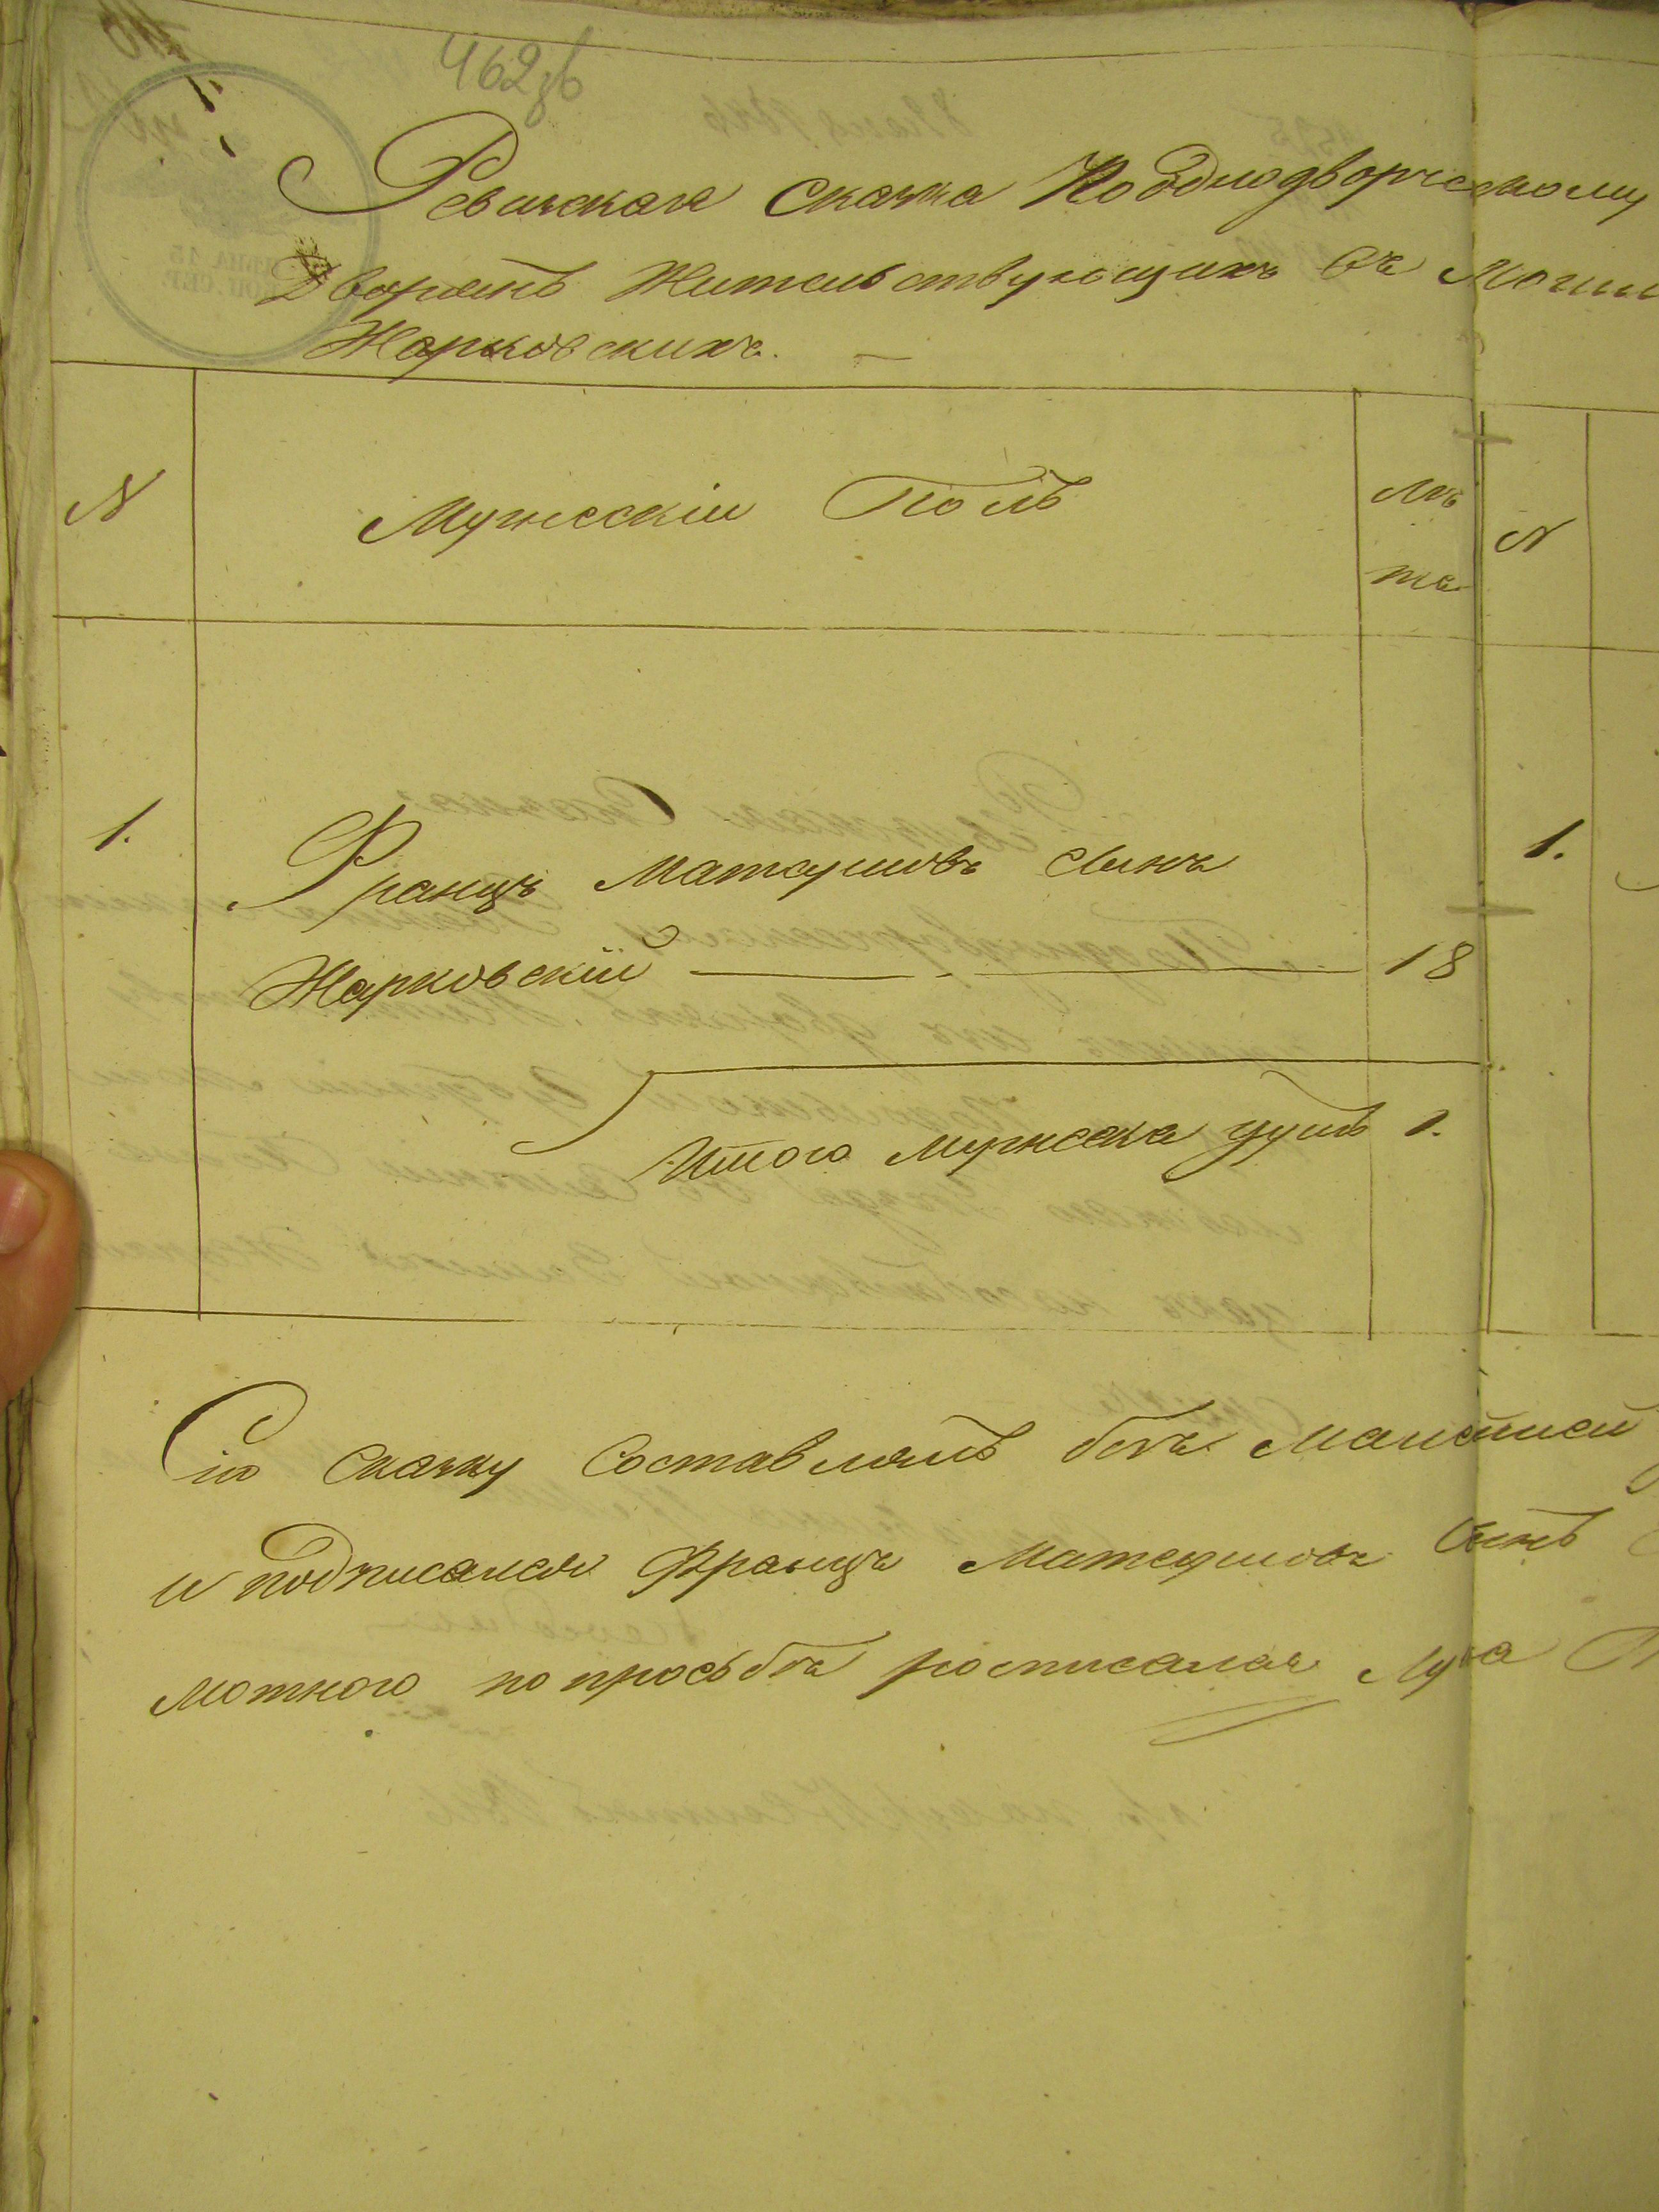 462зв
Ревизская Сказка По Однодворческому
Дворянъ Жительствующихъ въ Могил
Жарковскихъ.
N
Мужескій Полъ
лѣ
та
N
1.
Францъ Матеушовъ сынъ
Жарковскій
18
1.
Итого мужеска душъ 1.
Сію Сказку Составлялъ безъ
и подписался Францъ Матеушовъ Сынъ
мотного по прозьбѣ росписался Лука